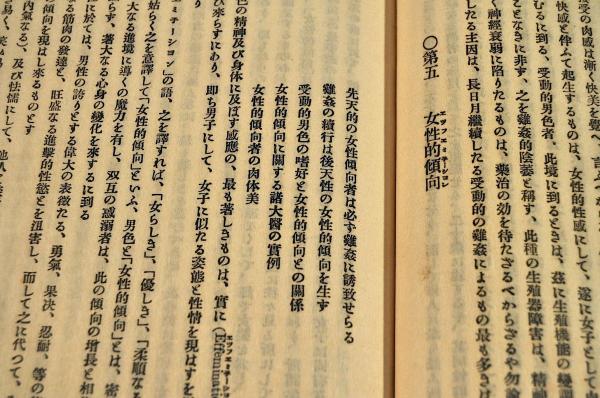 受の肉感は漸く快美を覺へ、言ふべか
快感と伴ふて起生するものは、女性的性感にして、遂に女子として
むるに到る、受動的男色者、此境に到るときは、玆に生殖機能の變
ことなきに非す、之を雞姦的陰萎と稱す、此種の生殖器障害は、精神
く神經衰弱に陷りたるものは、藥治の効を待たざるべからざるや勿論
したる主因は、長日月繼續したる受動的の雞姦によるもの最も多きは
〇第五 女性的傾向
エツフエミテーシヨン
先天的の女性傾向者は必す雞姦に誘致せらる
雞姦の續行は後天性の女性的傾向を生す
受動的男色の嗜好と女性的傾向との關係
女性的傾向に關する諸大醫の實例
女性的傾向者の肉体美
色の精神及び身体に及ぼす感應の、最も著しきものは、實に(Effeminatio
び來らすにあり、即ち男子にして、女子に似たる姿態と性情を現はすを
エミテーシヨン」の語、之を譯すれば、「女らしき」、「優しき」、「柔順なる
姑らく之を意譯して「女性的傾向」といふ、男色と「女性的傾向」とは、密
大なる進境に導くの魔力を有し、双互の惑溺者は、此の傾向の增長と相
らす、著大なる心身の變化を來するに到る
に於ては、男性の誇りとする偉大の表徴たる、勇氣、果决、忍耐、等の
なる筋肉の發達と、旺盛なる進擊的性慾とを沮害し、而して之に代つて、
の傾向を現はし來るものとす
內氣なる)、及び怯懦にして、他人